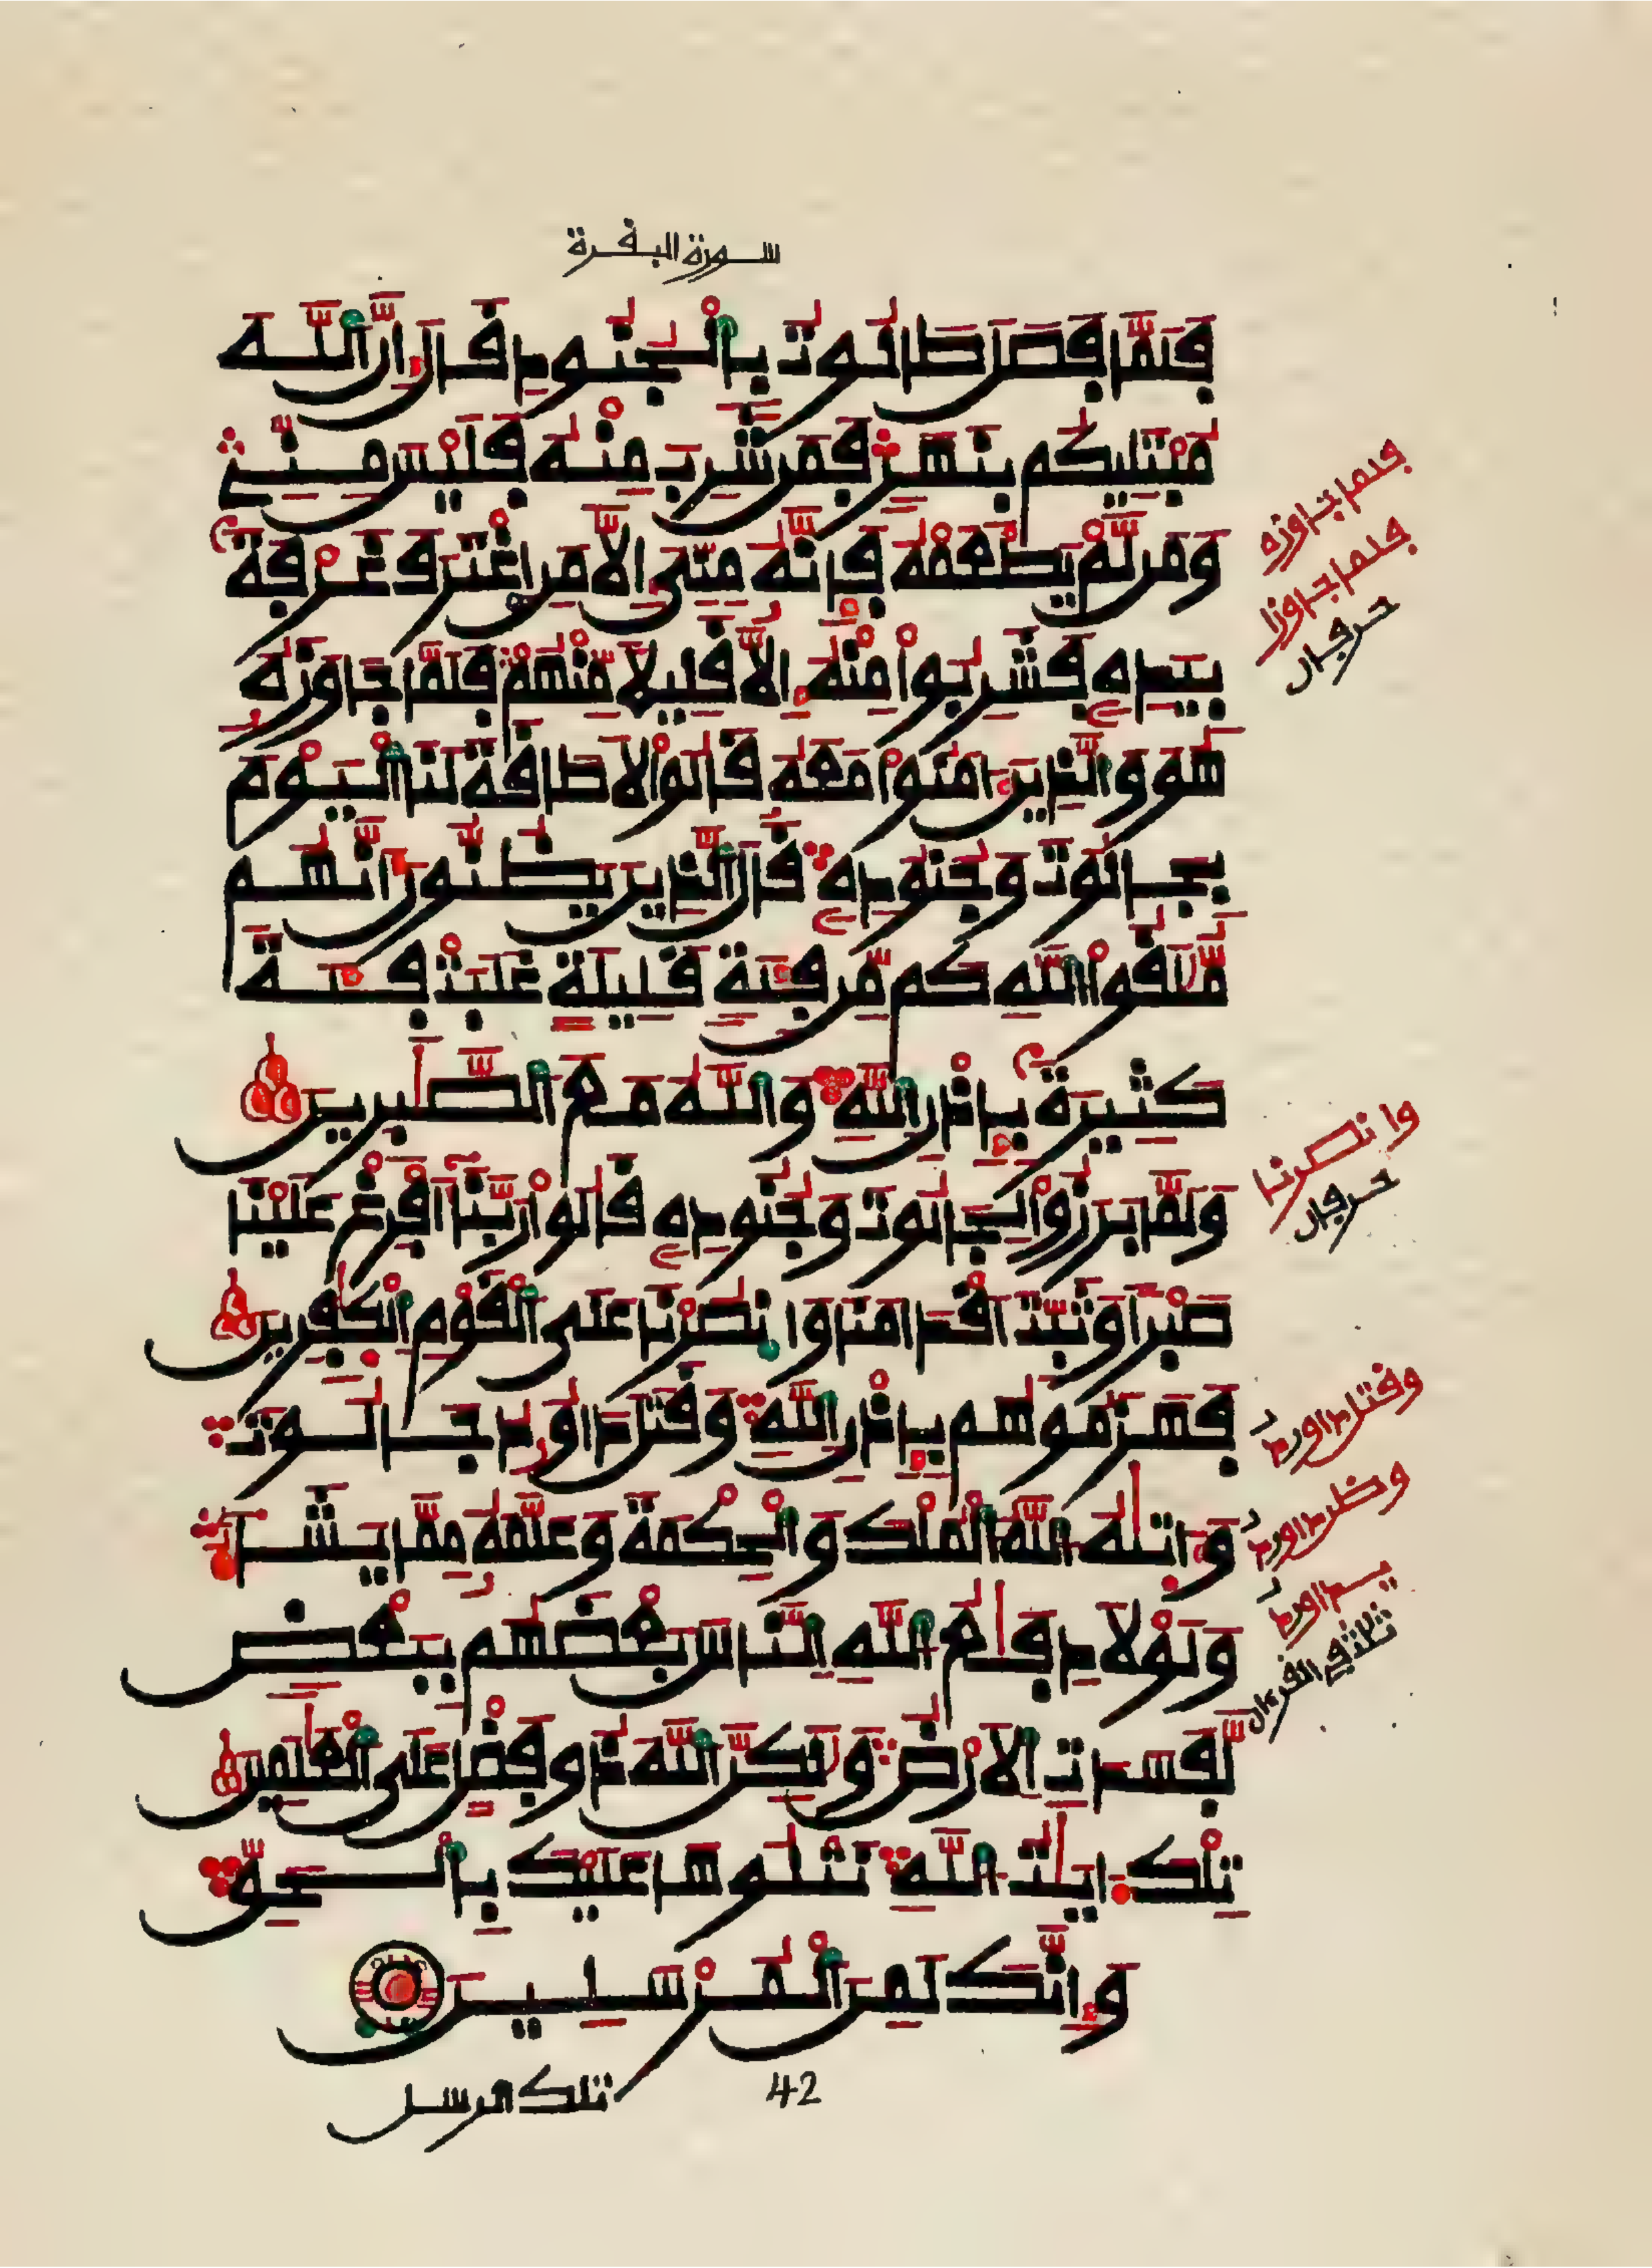 سورة البقرة
فَلَمَّا فَصَلَ طَالُوتُ بِالْجُنُودِ قَالَ إِنَّ اَللَّهَ
مُبْتَلِيكُم بِنَهَرٍ فَمَن شَرِبَ مِنْهُ فَلَيْسَ مِنِّے
وَمَن لَّمْ يَطْعَمْهُ فَإِنَّهُ مِنِّىَ إِلاَّ مَنِ اِغْتَرَفَ غَرْفَةً
بِيَدِهِ فَشَرِبُواْ مِنْهُ إِلاَّ قَلِيلاً مِّنْهُمْ فَلَمَّا جَاوَزَهُ
هُوَ وَالَّذِينَ ءَامَنُواْ مَعَهُ قَالُواْ لاَ طَاقَةَ لَنَا اَلْيَوْمَ
بِجَالُوتَ وَجُنُودِهِ قَالَ اَلَّذِينَ يَظُنُّونَ أَنَّهُم
مُّلَٰقُواْ اُللَّهِ كَم مِّن فِئَةٍ قَلِيلَةٍ غَلَبَتْ فِئَةً
كَثِيرَةً بِإِذْنِ اِللَّهِ وَاللَّهُ مَعَ اَلصَّٰبِرِينَ
وَلَمَّا بَرَزُواْ لِجَالُوتَ وَجُنُودِهِ قَالُواْ رَبَّنَا أَفْرِغْ عَلَيْنَا
صَبْراً وَثَبِّتْ أَقْدَامَنَا وَانصُرْنَا عَلَى اَلْقَوْمِ اِلْكَٰفِرِينَ
فَهَزَمُوهُم بِإِذْنِ اِللَّهِ وَقَتَلَ دَاوُدُ جَالُوتَ
وَءَاتَيٰهُ اُللَّهُ اُلْمُلْكَ وَالْحِكْمَةَ وَعَلَّمَهُ مِمَّا يَشَآءُ
وَلَوْلاَ دِفَٰعُ اُللَّهِ اِلنَّاسَ بَعْضَهُم بِبَعْضٍ
لَّفَسَدَتِ اِلاَرْضُ وَلَٰكِنَّ اَللَّهَ ذُو فَضْلٍ عَلَى اَلْعَٰلَمِينَ
تِلْكَ ءَايَٰتُ اُللَّهِ نَتْلُوهَا عَلَيْكَ بِالْحَقِّ
وَإِنَّكَ لَمِنَ اَلْمُرْسَلِينَ
تلك الرسل
42
فلما جاوزه
فلما جاوزا
حرفان
وانصرنا
حرفان
وقتل داورد
وظن داورد
يداورد
ثلث في القرءان